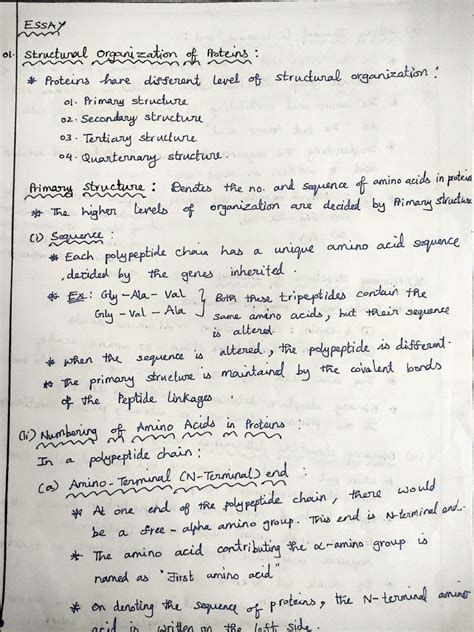 ESSAY
01. Structural Organization of Proteins :
* Proteins have different level of structural organization :
01. Primary structure
02. Secondary structure
03. Tertiary structure
04. Quarternary structure
Primary structure : Denotes the no. and sequence of amino acids in protein
* The higher levels of organization are decided by Primary structure
(i) Sequence :
* Each polypeptide chain has a unique amino acid sequence
decided by the genes inherited.
* Ex : Gly - Ala - Val } Both these tripeptides contain the
Gly - Val - Ala same amino acids, but their sequence
is altered.
* when the sequence is altered, the polypeptide is different.
* The primary structure is maintained by the covalent bonds
of the Peptide linkages.
(ii) Numbering of Amino Acids in Proteins :
In a polypeptide chain :
(a) Amino-Terminal (N-Terminal) end :
* At one end of the polypeptide chain, there would
be a free-alpha amino group. This end is N-terminal end.
* The amino acid contributing the α-amino group is
named as "First amino acid"
* On denoting the sequence of proteins, the N-terminal amino
acid is written on the left side.